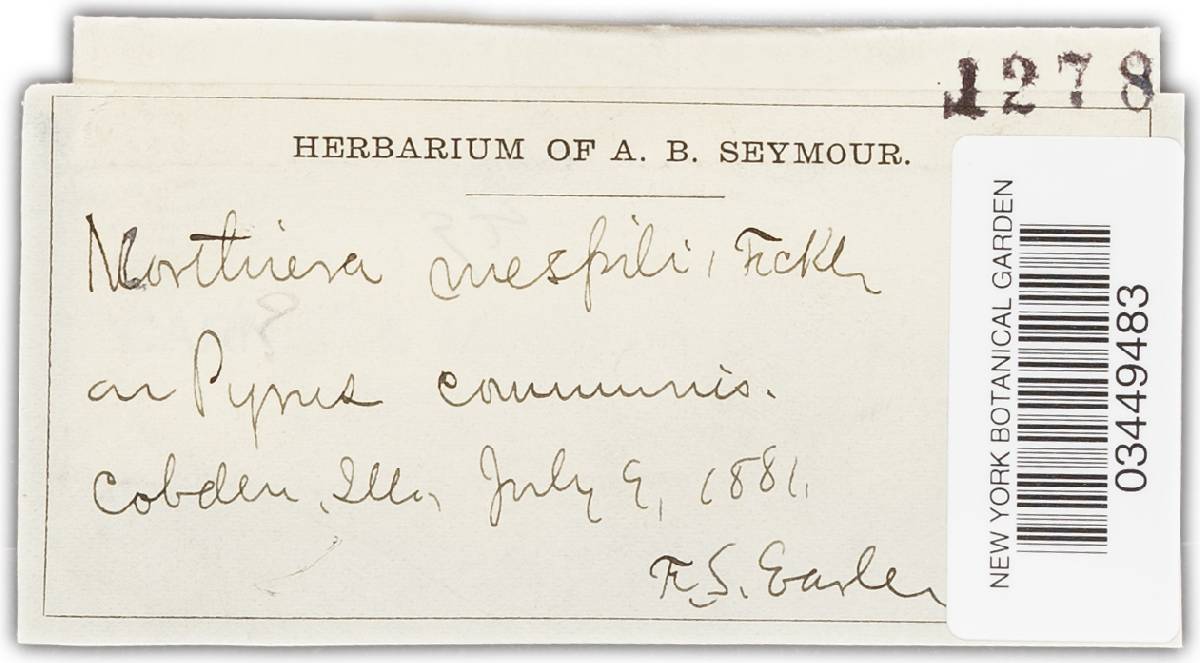 1278
HERBARIUM OF A. B. SEYMOUR.
Morthiera mespili, Fckl.
on Pyrus communis.
Cobden, Ills, July 9, 1881.
F. S. Earle
NEW YORK BOTANICAL GARDEN
03449483